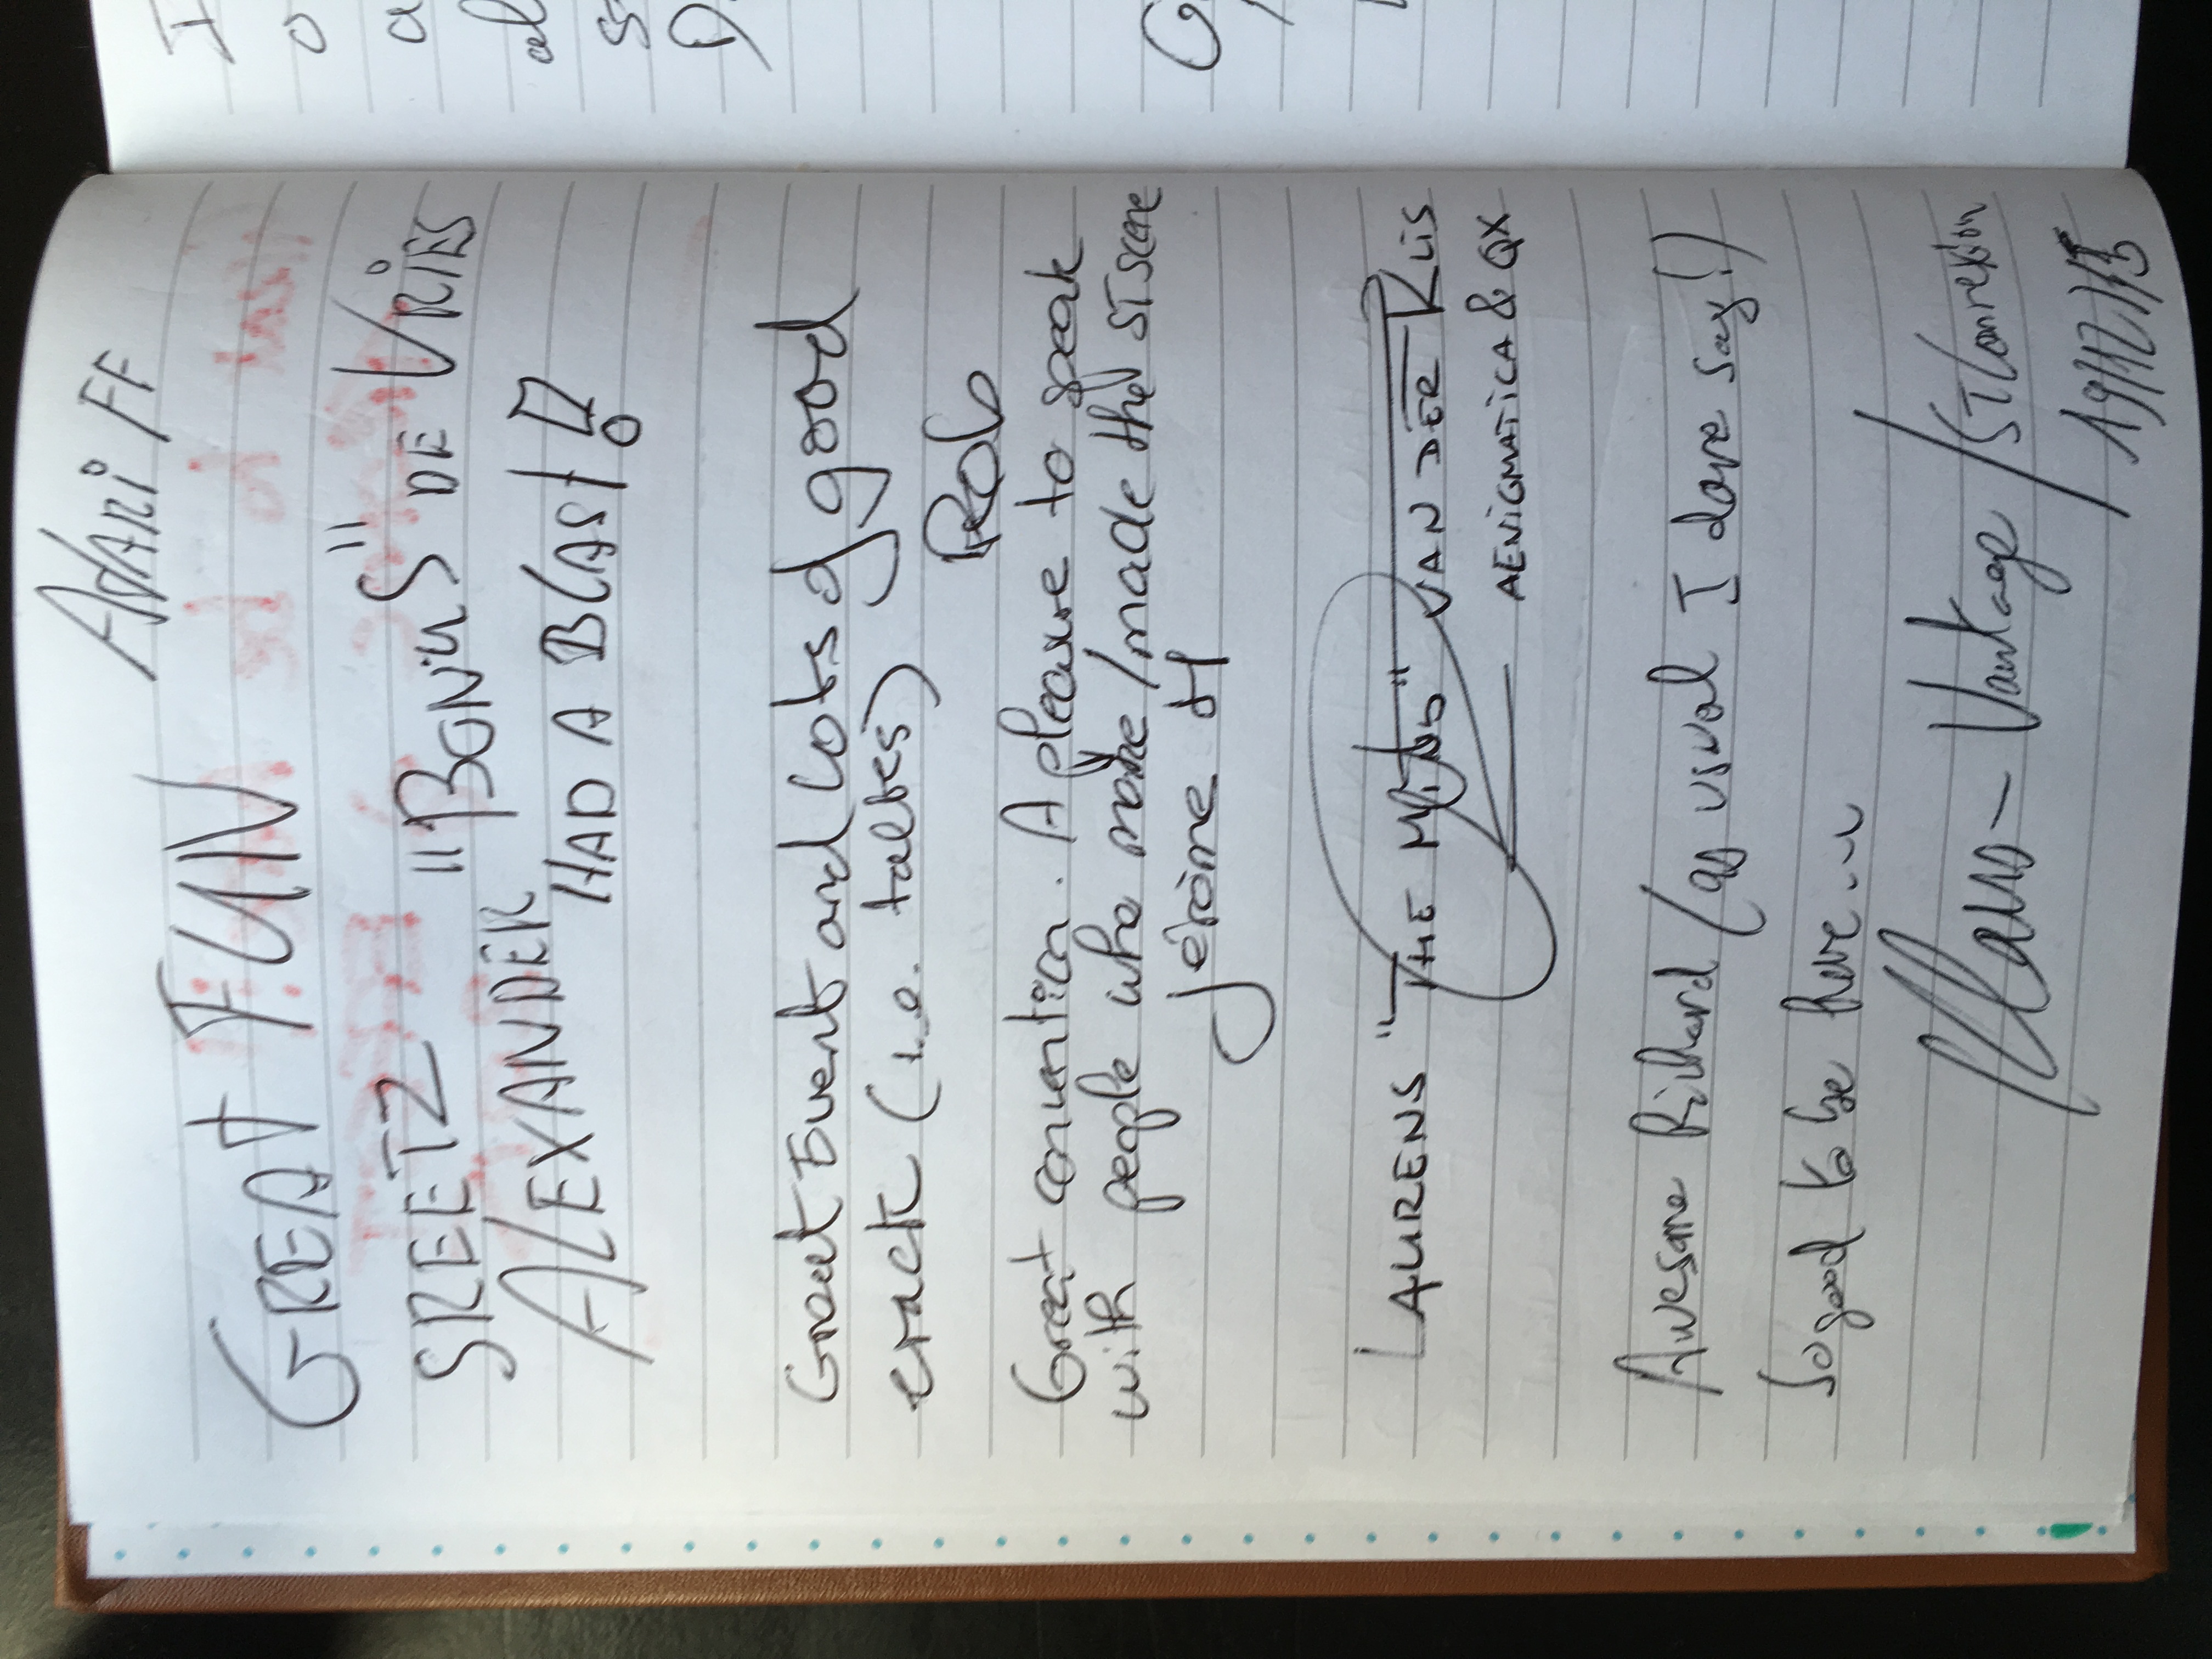 ATARI FF
GREAT FUN
SREETZ "BONUS" DE VRIES
ALEXANDER
HAD A BLAST!
Great Event and Lots of good
crack (i.e. talkes)
Rob
Great convention. A pleasure to speak
with people who make/made the ST scene
Jérôme H
LAURENS "THE MIND" VAN DER KLIS
— AENIGMATICA & QX
Awesome Richard (as usual I dare say!)
So good to be here...
— Vantage / ST Connexion
19/12/15